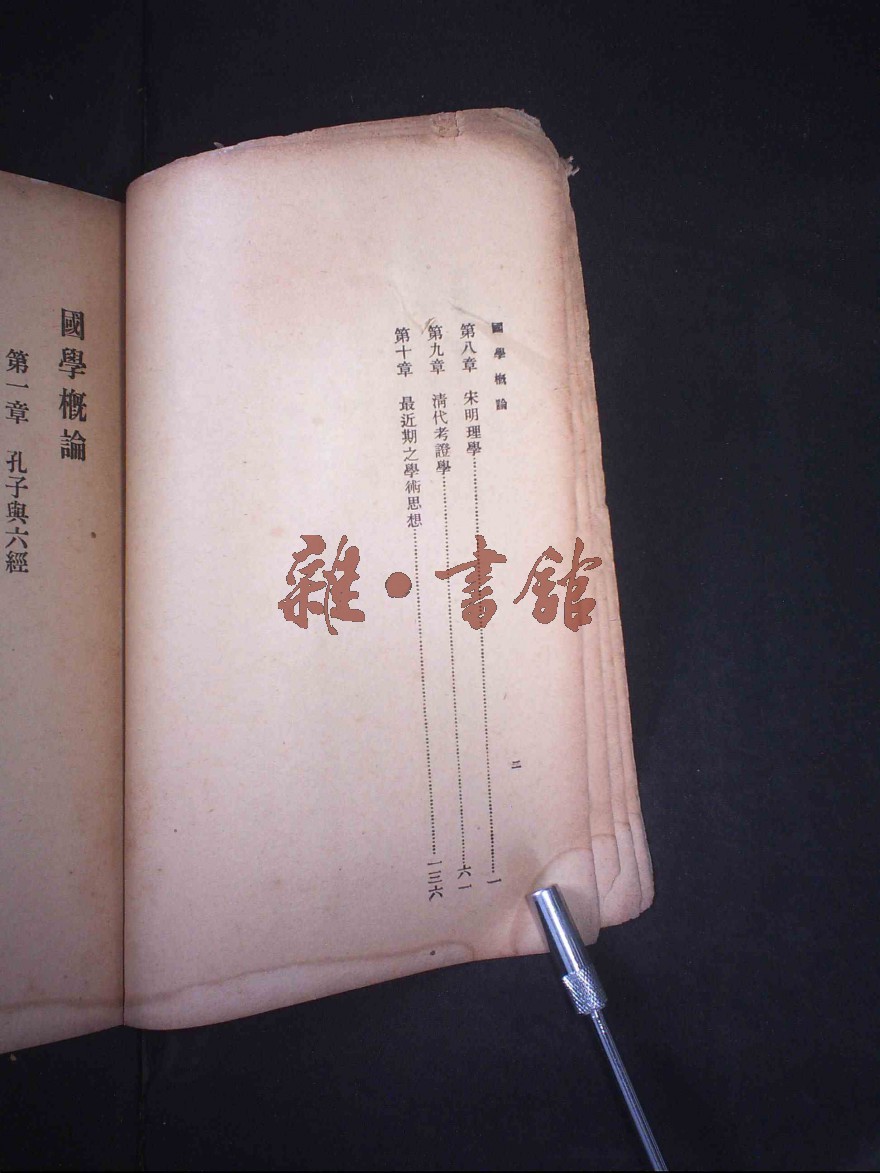 國學概論
第八章　宋明理學……一
第九章　清代考證學……六一
第十章　最近期之學術思想……一三六
二
國學概論
第一章　孔子與六經
雜·書館